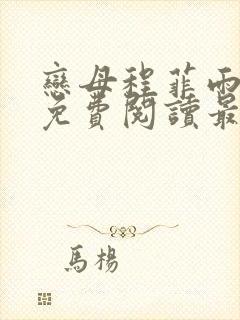 戀母程菲雨
免費閱讀最
馬楊